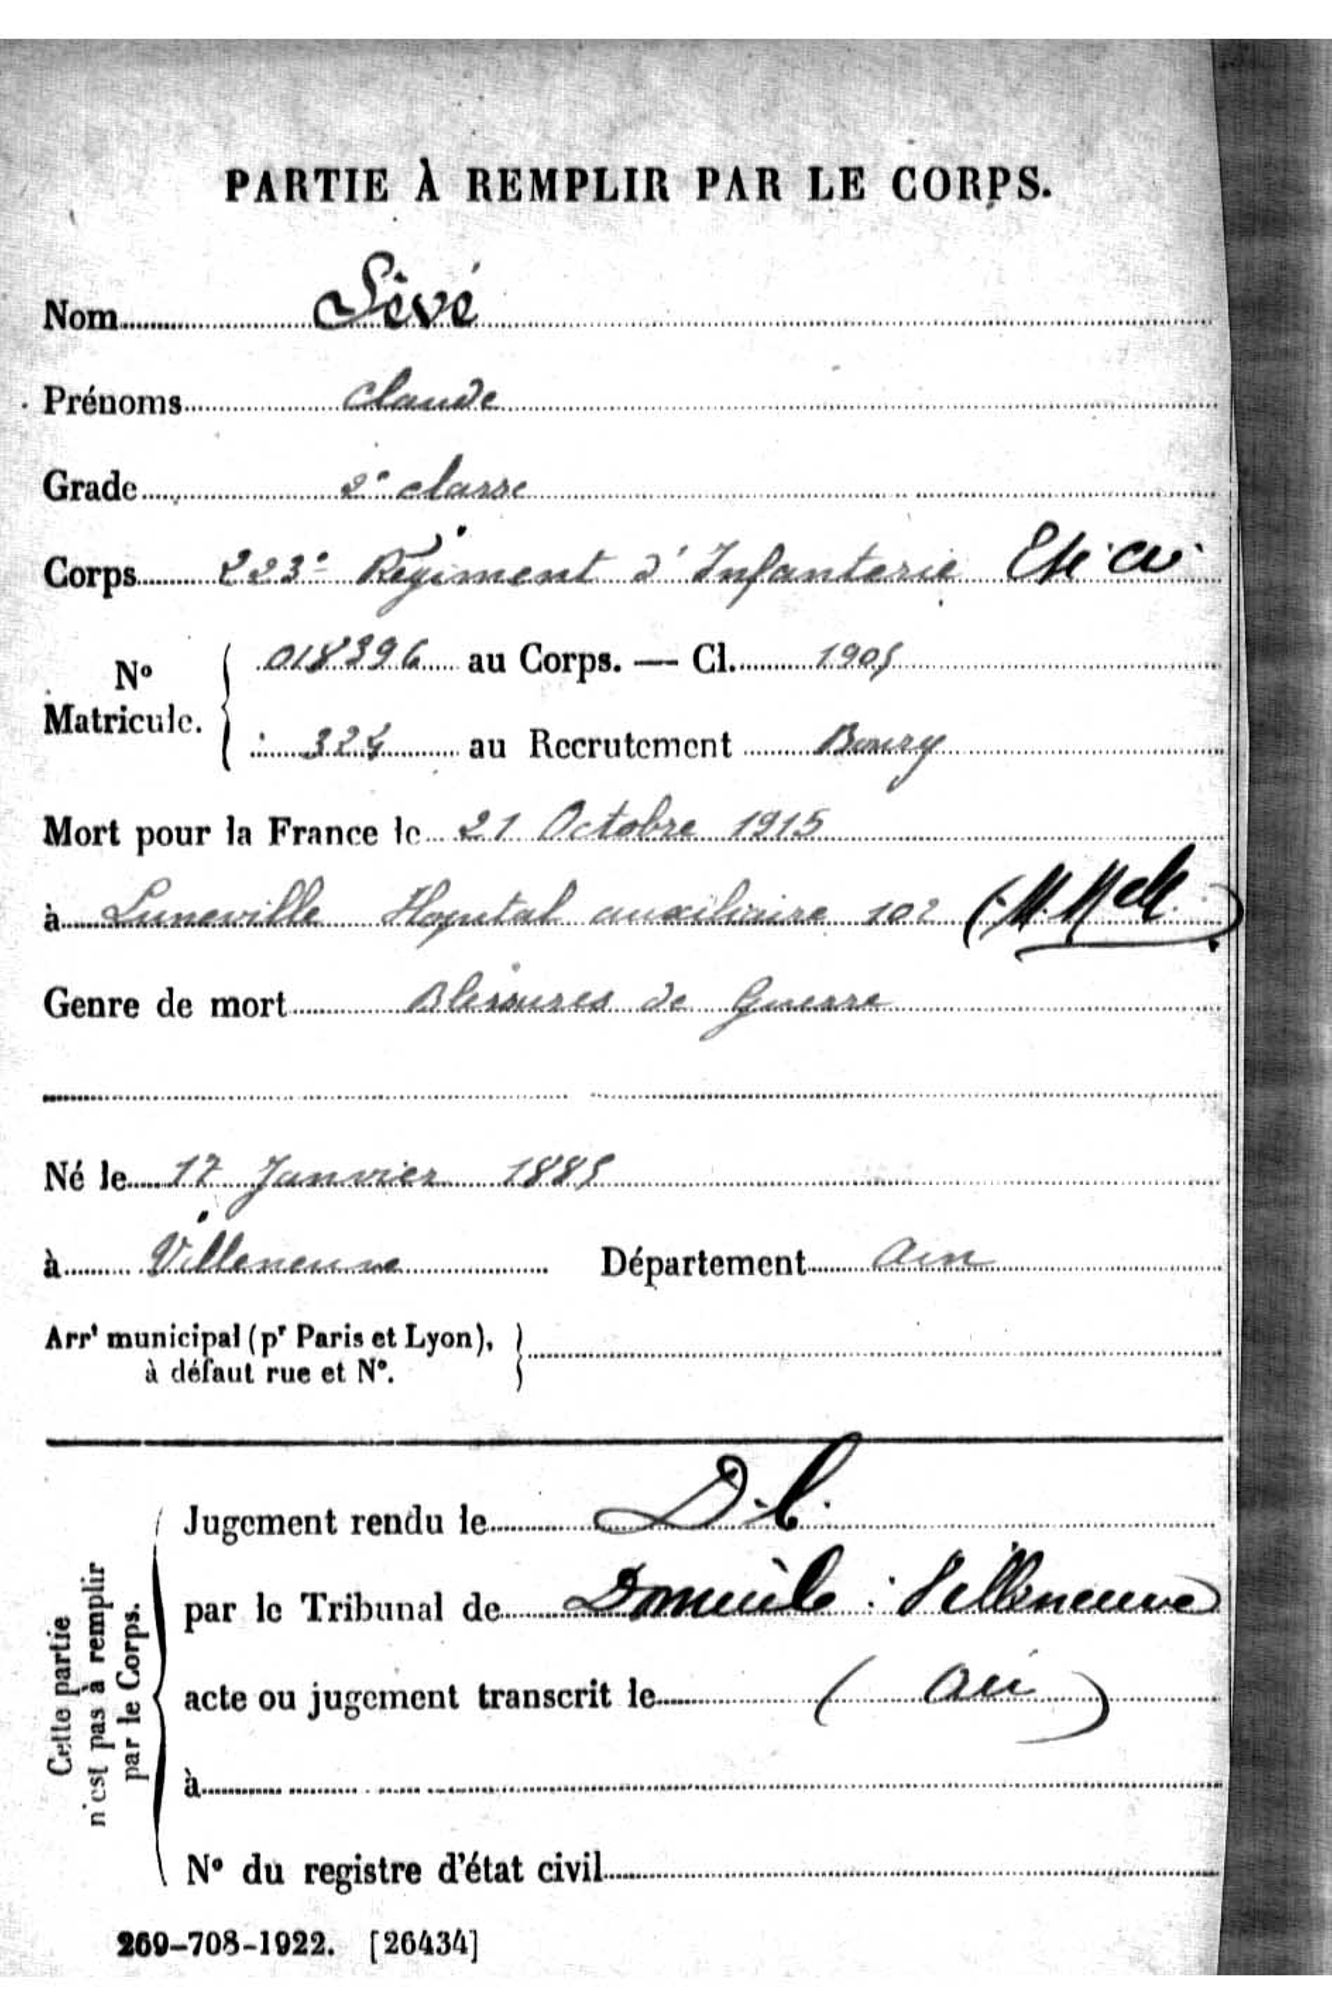 PARTIE À REMPLIR PAR LE CORPS.
Nom Sève
Prénoms Claude
Grade 2e classe
Corps 223e Régiment d'Infanterie
No Matricule. 018396 au Corps. — Cl. 1905
324 au Recrutement Bourg
Mort pour la France le 21 Octobre 1915
à Luneville Hopital auxiliaire 102 (M. Mlle)
Genre de mort Blessures de Guerre
Né le 17 Janvier 1885
à Villeneuve Département Ain
Arrt municipal (pr Paris et Lyon),
à défaut rue et No.
Cette partie
n'est pas à remplir
par le Corps.
Jugement rendu le D.C.
par le Tribunal de Domicile : Villeneuve
acte ou jugement transcrit le ( Ain )
à
No du registre d'état civil
269-708-1922. [26434]